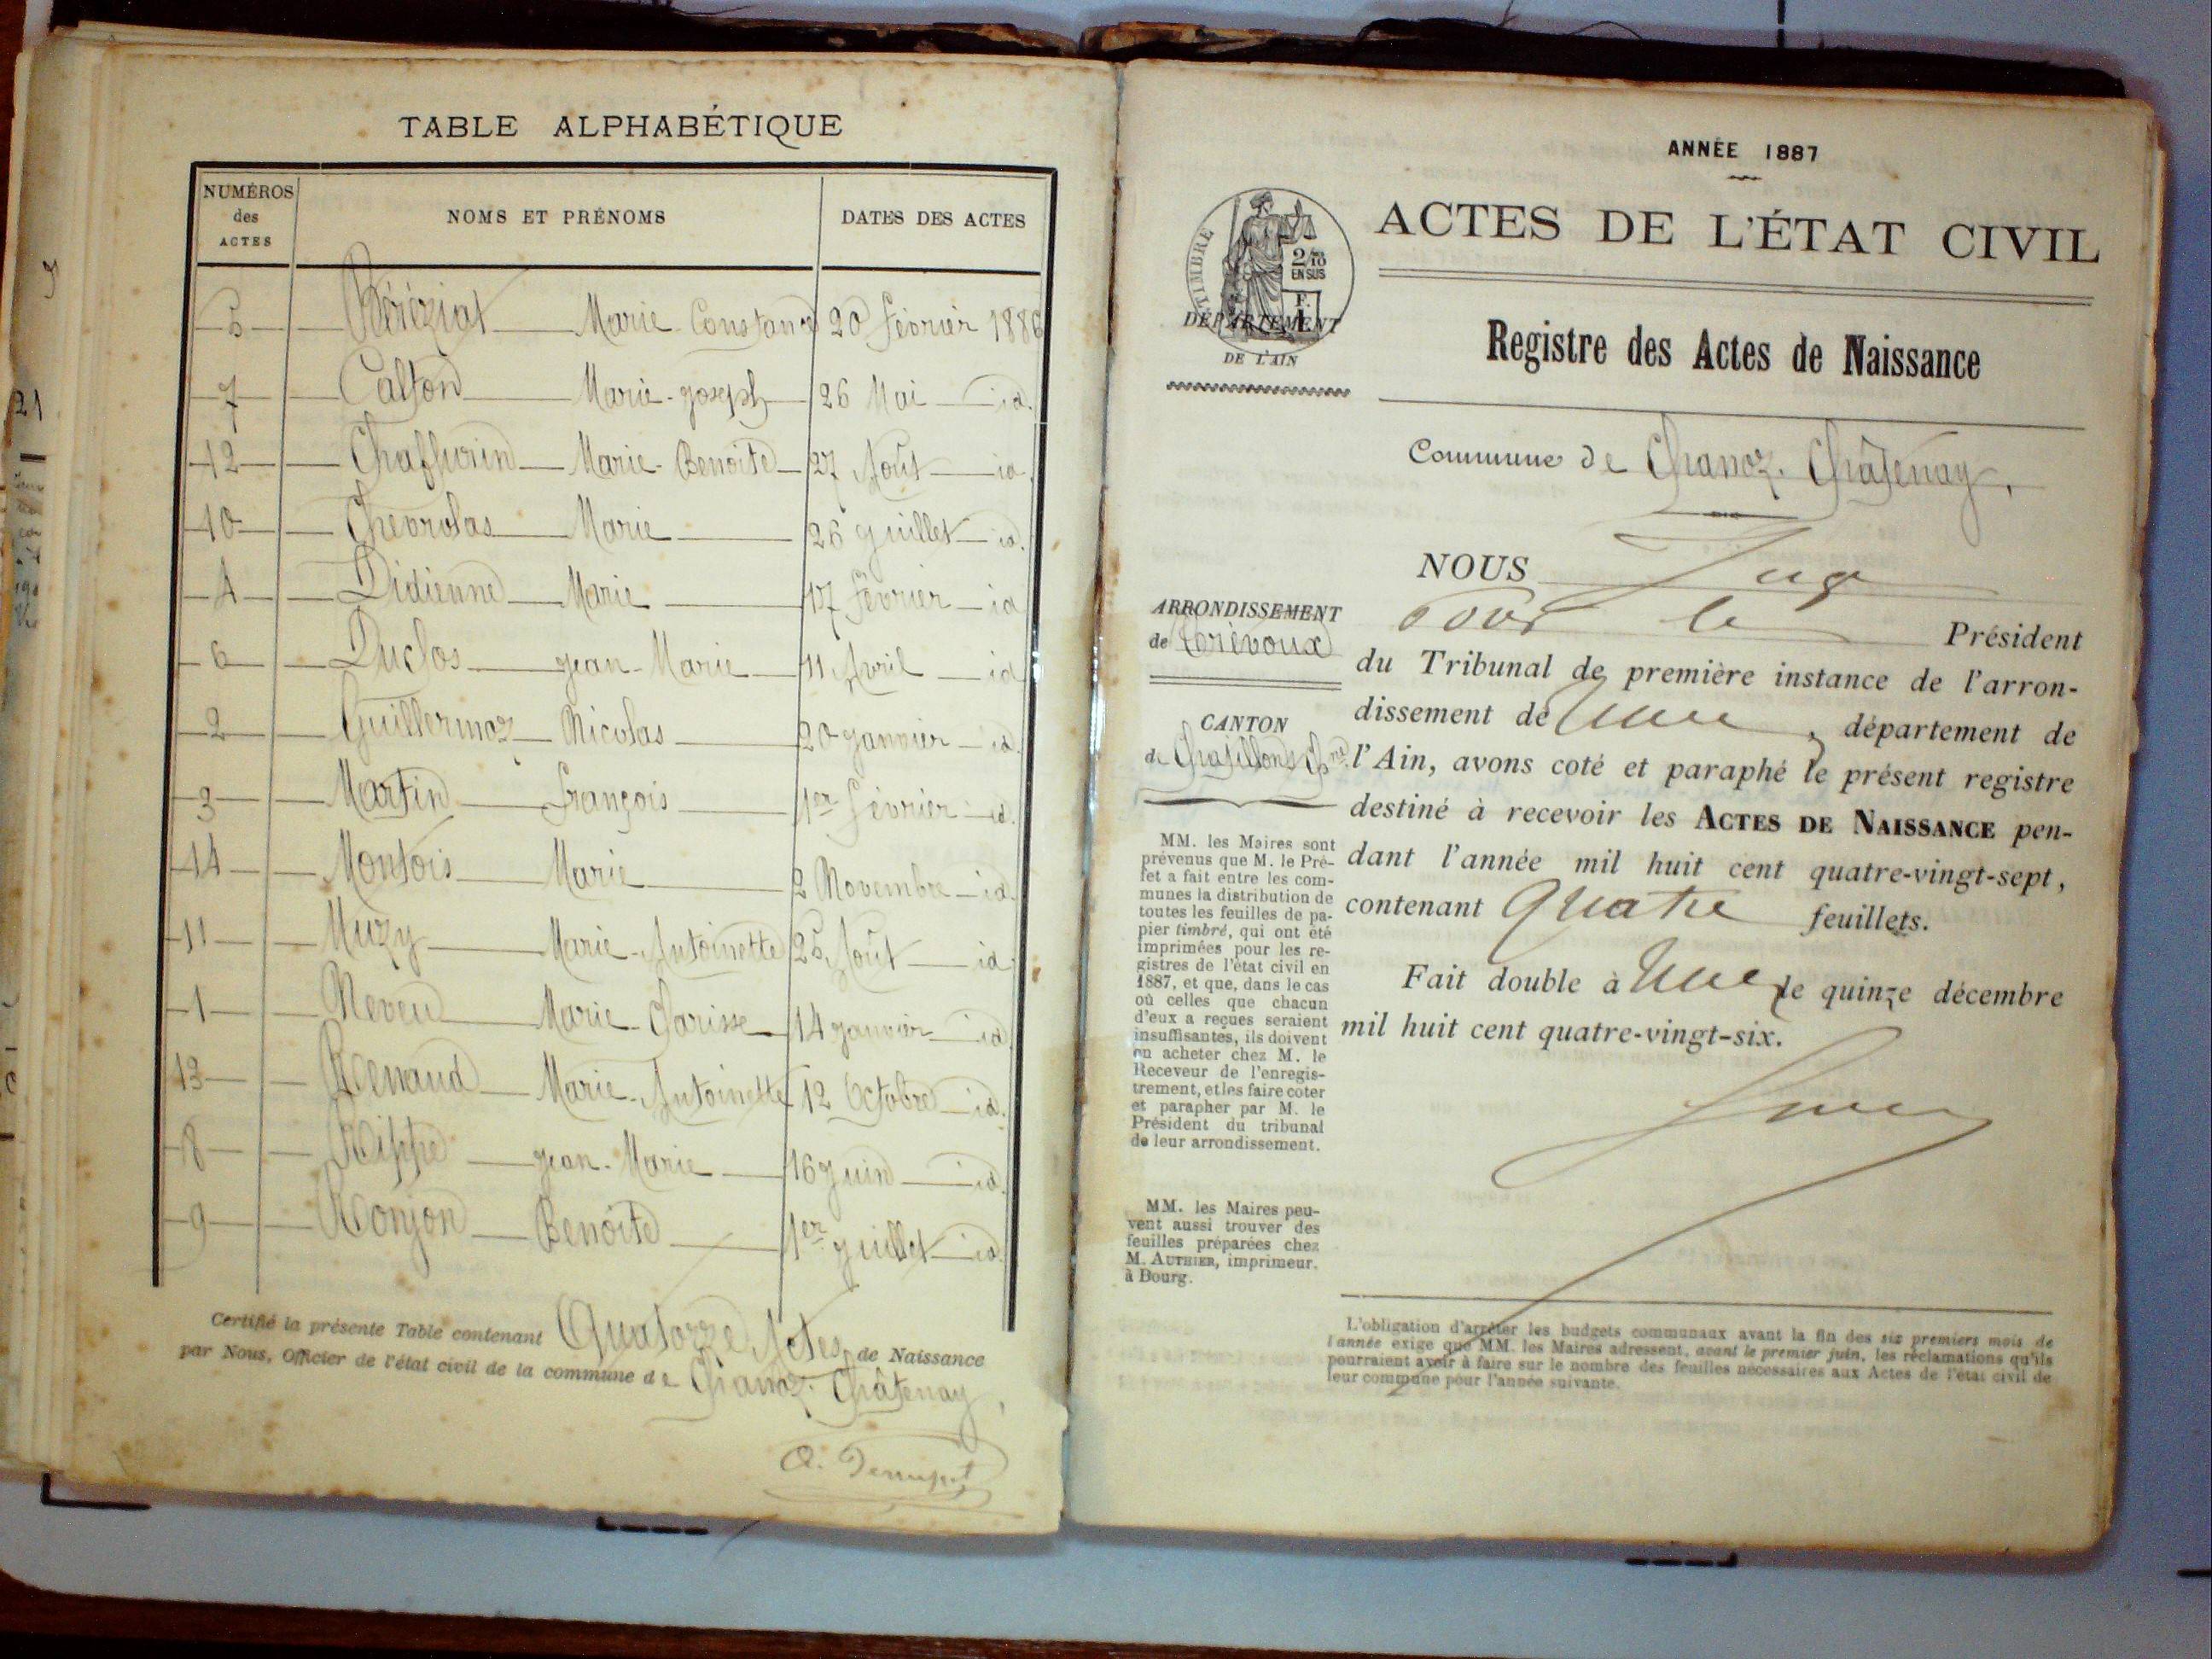 TABLE ALPHABÉTIQUE
NUMÉROS des ACTES NOMS ET PRÉNOMS DATES DES ACTES
5 Béréziat Marie Constance 20 février 1886
7 Calton Marie-Joseph 26 Mai id.
12 Chaffurin Marie-Benoite 27 Août id.
10 Chevrolas Marie 26 Juillet id.
4 Didienne Marie 17 février id
6 Duclos Jean-Marie 11 Avril id
2 Guillermoz Nicolas 20 Janvier id.
3 Martin françois 1er février id.
14 Montois Marie 2 Novembre id.
11 Muzy Marie-Antoinette 25 Août id.
1 Neveu Marie-Clarisse 14 Janvier id
13 Renaud Marie-Antoinette 12 Octobre id.
8 Rippe Jean-Marie 16 Juin id.
9 Ronjon Benoite 1er Juillet id.
Certifié la présente Table contenant Quatorze Actes de Naissance
par Nous, Officier de l'état civil de la commune de Chanoz-Châtenay,
21
ANNÉE 1887
TIMBRE
2/10
EN SUS
F.
DÉPARTEMENT
DE L'AIN
ACTES DE L'ÉTAT CIVIL
Registre des Actes de Naissance
Commune de Chanoz-Châtenay,
ARRONDISSEMENT
de Trévoux
CANTON
de Chatillon s/ Chne
MM. les Maires sont
prévenus que M. le Pré-
fet a fait entre les com-
munes la distribution de
toutes les feuilles de pa-
pier timbré, qui ont été
imprimées pour les re-
gistres de l'état civil en
1887, et que, dans le cas
où celles que chacun
d'eux a reçues seraient
insuffisantes, ils doivent
en acheter chez M. le
Receveur de l'enregis-
trement, et les faire coter
et parapher par M. le
Président du tribunal
de leur arrondissement.
MM. les Maires peu-
vent aussi trouver des
feuilles préparées chez
M. AUTHIER, imprimeur,
à Bourg.
NOUS Juge
pour le Président
du Tribunal de première instance de l'arron-
dissement de , département de
l'Ain, avons coté et paraphé le présent registre
destiné à recevoir les ACTES DE NAISSANCE pen-
dant l'année mil huit cent quatre-vingt-sept,
contenant Quatre feuillets.
Fait double à le quinze décembre
mil huit cent quatre-vingt-six.
L'obligation d'arrêter les budgets communaux avant la fin des six premiers mois de
l'année exige que MM. les Maires adressent, avant le premier juin, les réclamations qu'ils
pourraient avoir à faire sur le nombre des feuilles nécessaires aux Actes de l'état civil de
leur commune pour l'année suivante.